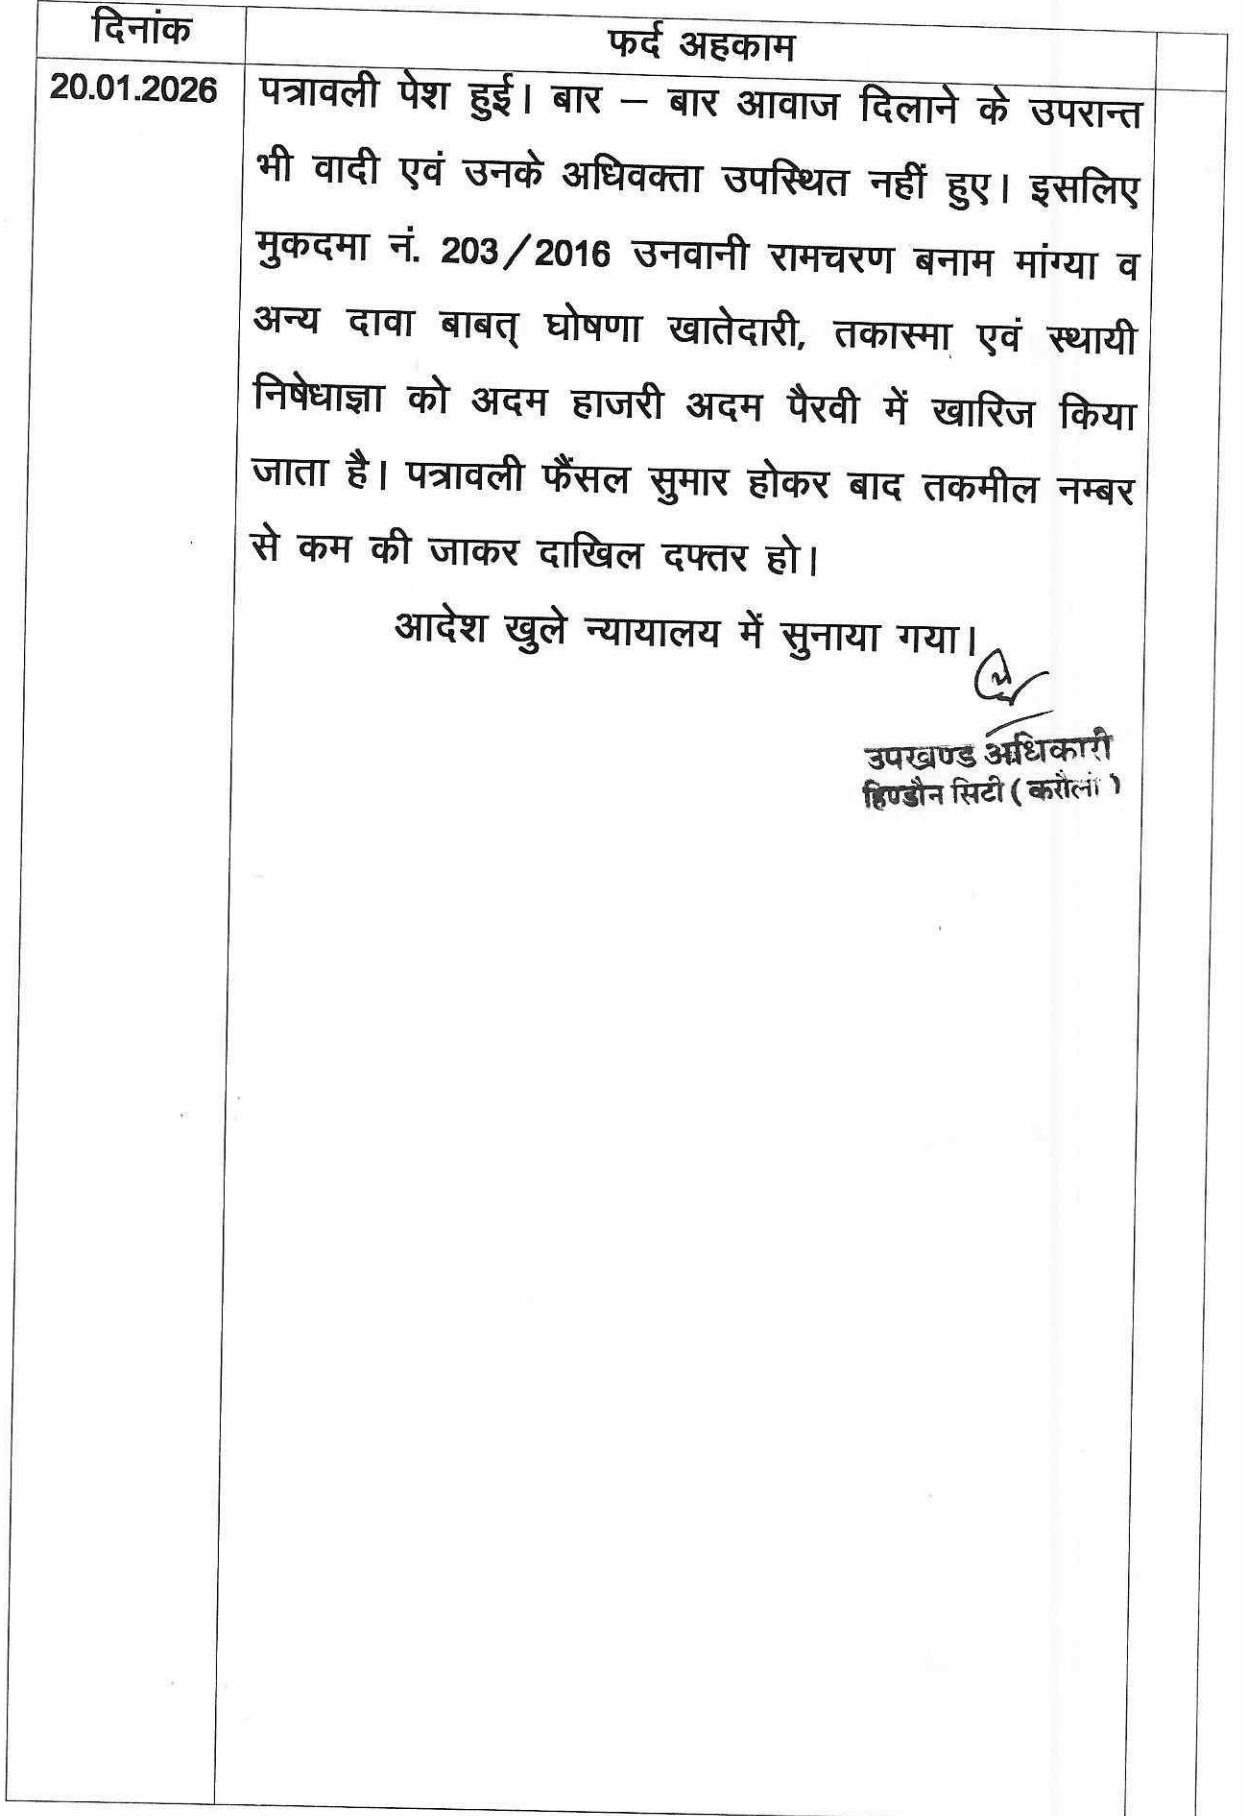 दिनांक
फर्द अहकाम
20.01.2026
पत्रावली पेश हुई। बार – बार आवाज दिलाने के उपरान्त
भी वादी एवं उनके अधिवक्ता उपस्थित नहीं हुए। इसलिए
मुकदमा नं. 203/2016 उनवानी रामचरण बनाम मांग्या व
अन्य दावा बाबत् घोषणा खातेदारी, तकास्मा एवं स्थायी
निषेधाज्ञा को अदम हाजरी अदम पैरवी में खारिज किया
जाता है। पत्रावली फैंसल सुमार होकर बाद तकमील नम्बर
से कम की जाकर दाखिल दफ्तर हो।
आदेश खुले न्यायालय में सुनाया गया।
उपखण्ड अधिकारी
हिण्डौन सिटी (करौली)